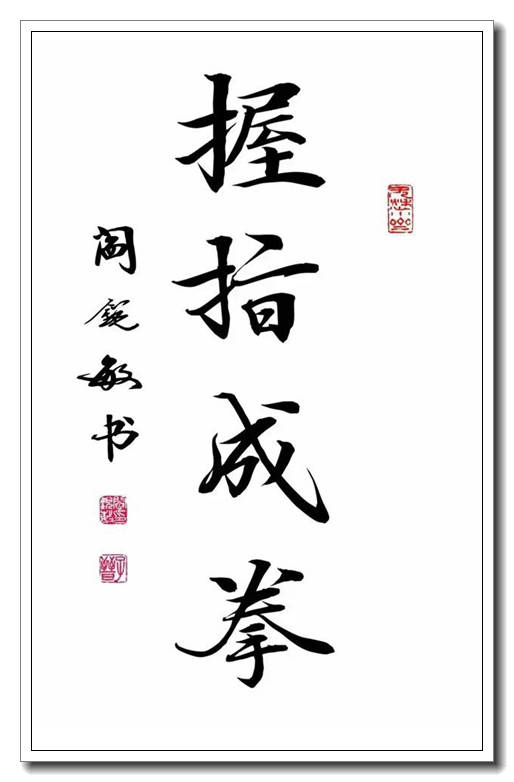 握指成拳
阎锐敏书